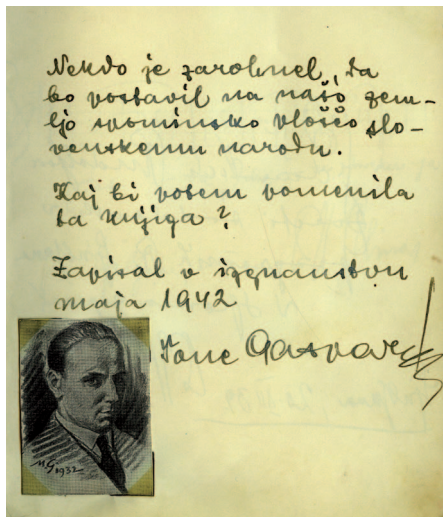 Nekdo je zarohnel, da
bo postavil na našo zem-
ljo spominsko ploščo slo-
venskemu narodu.
Kaj bi potem pomenila
ta knjiga?
Zapisal v izgnanstvu
maja 1942
Tone Gaspari
M.G. 1932